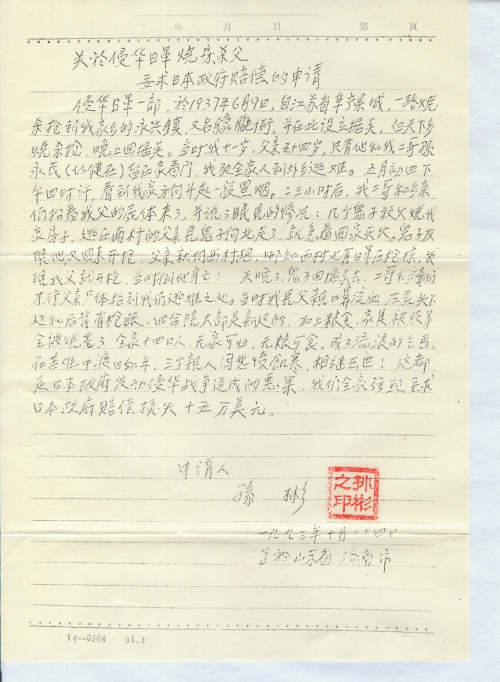 年 月 日 第 頁
关於侵华日軍烧房杀父
要求日本政府賠偿的申请
侵华日軍一部，於1937年6月9日，自江苏省阜宁县城，一路烧
杀抢到我家乡的永兴镇，又名 街，并在此设立据点，白天下乡
烧杀抢，晚上回据点。当时我十一岁，父亲五十四岁，只有他和我二哥孙
永民（仍健在）留在家看门，我就全家人到外乡逃难。五月初四下
午四时许，看到我家方向升起一股黑烟。二三小时后，我二哥和乡亲
们抬着我父的尸体来了，并说了眼见的情况：几个鬼子放火烧我
家房子，逃在西村的父亲见鬼子向北走了，就急着回家灭火。鬼子发
现他又回来开枪，父亲就向西村跑，哪知西村还有日軍在抢掠，发
现我父就开枪，当时倒地身亡！天晚了，鬼子回据点去，二哥和乡親们
才将父亲尸体抬到我们逃难之处。当时我见父親口鼻流血，左
处和后背有枪眼，四合院大部是新建的，加上粮食、家具、被
全被烧光了，全家十四口人，无家可归，无粮可食，成了流浪的乞丐，
在苦难中渡日如年，三个親人因悲愤飢寒，相继去世！这都
是日本政府发动侵华战争造成的恶果，我们全家强烈要求
日本政府賠偿损失十五万美元。
申請人
孫 彬
孙彬之印
一九九三年十月二十四日
于山东省济南市
14—0366 91.4